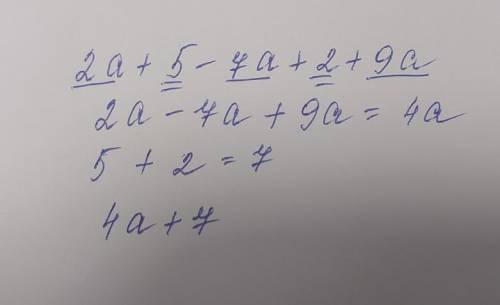 2a + 5 - 7a + 2 + 9a
2a - 7a + 9a = 4a
5 + 2 = 7
4a + 7